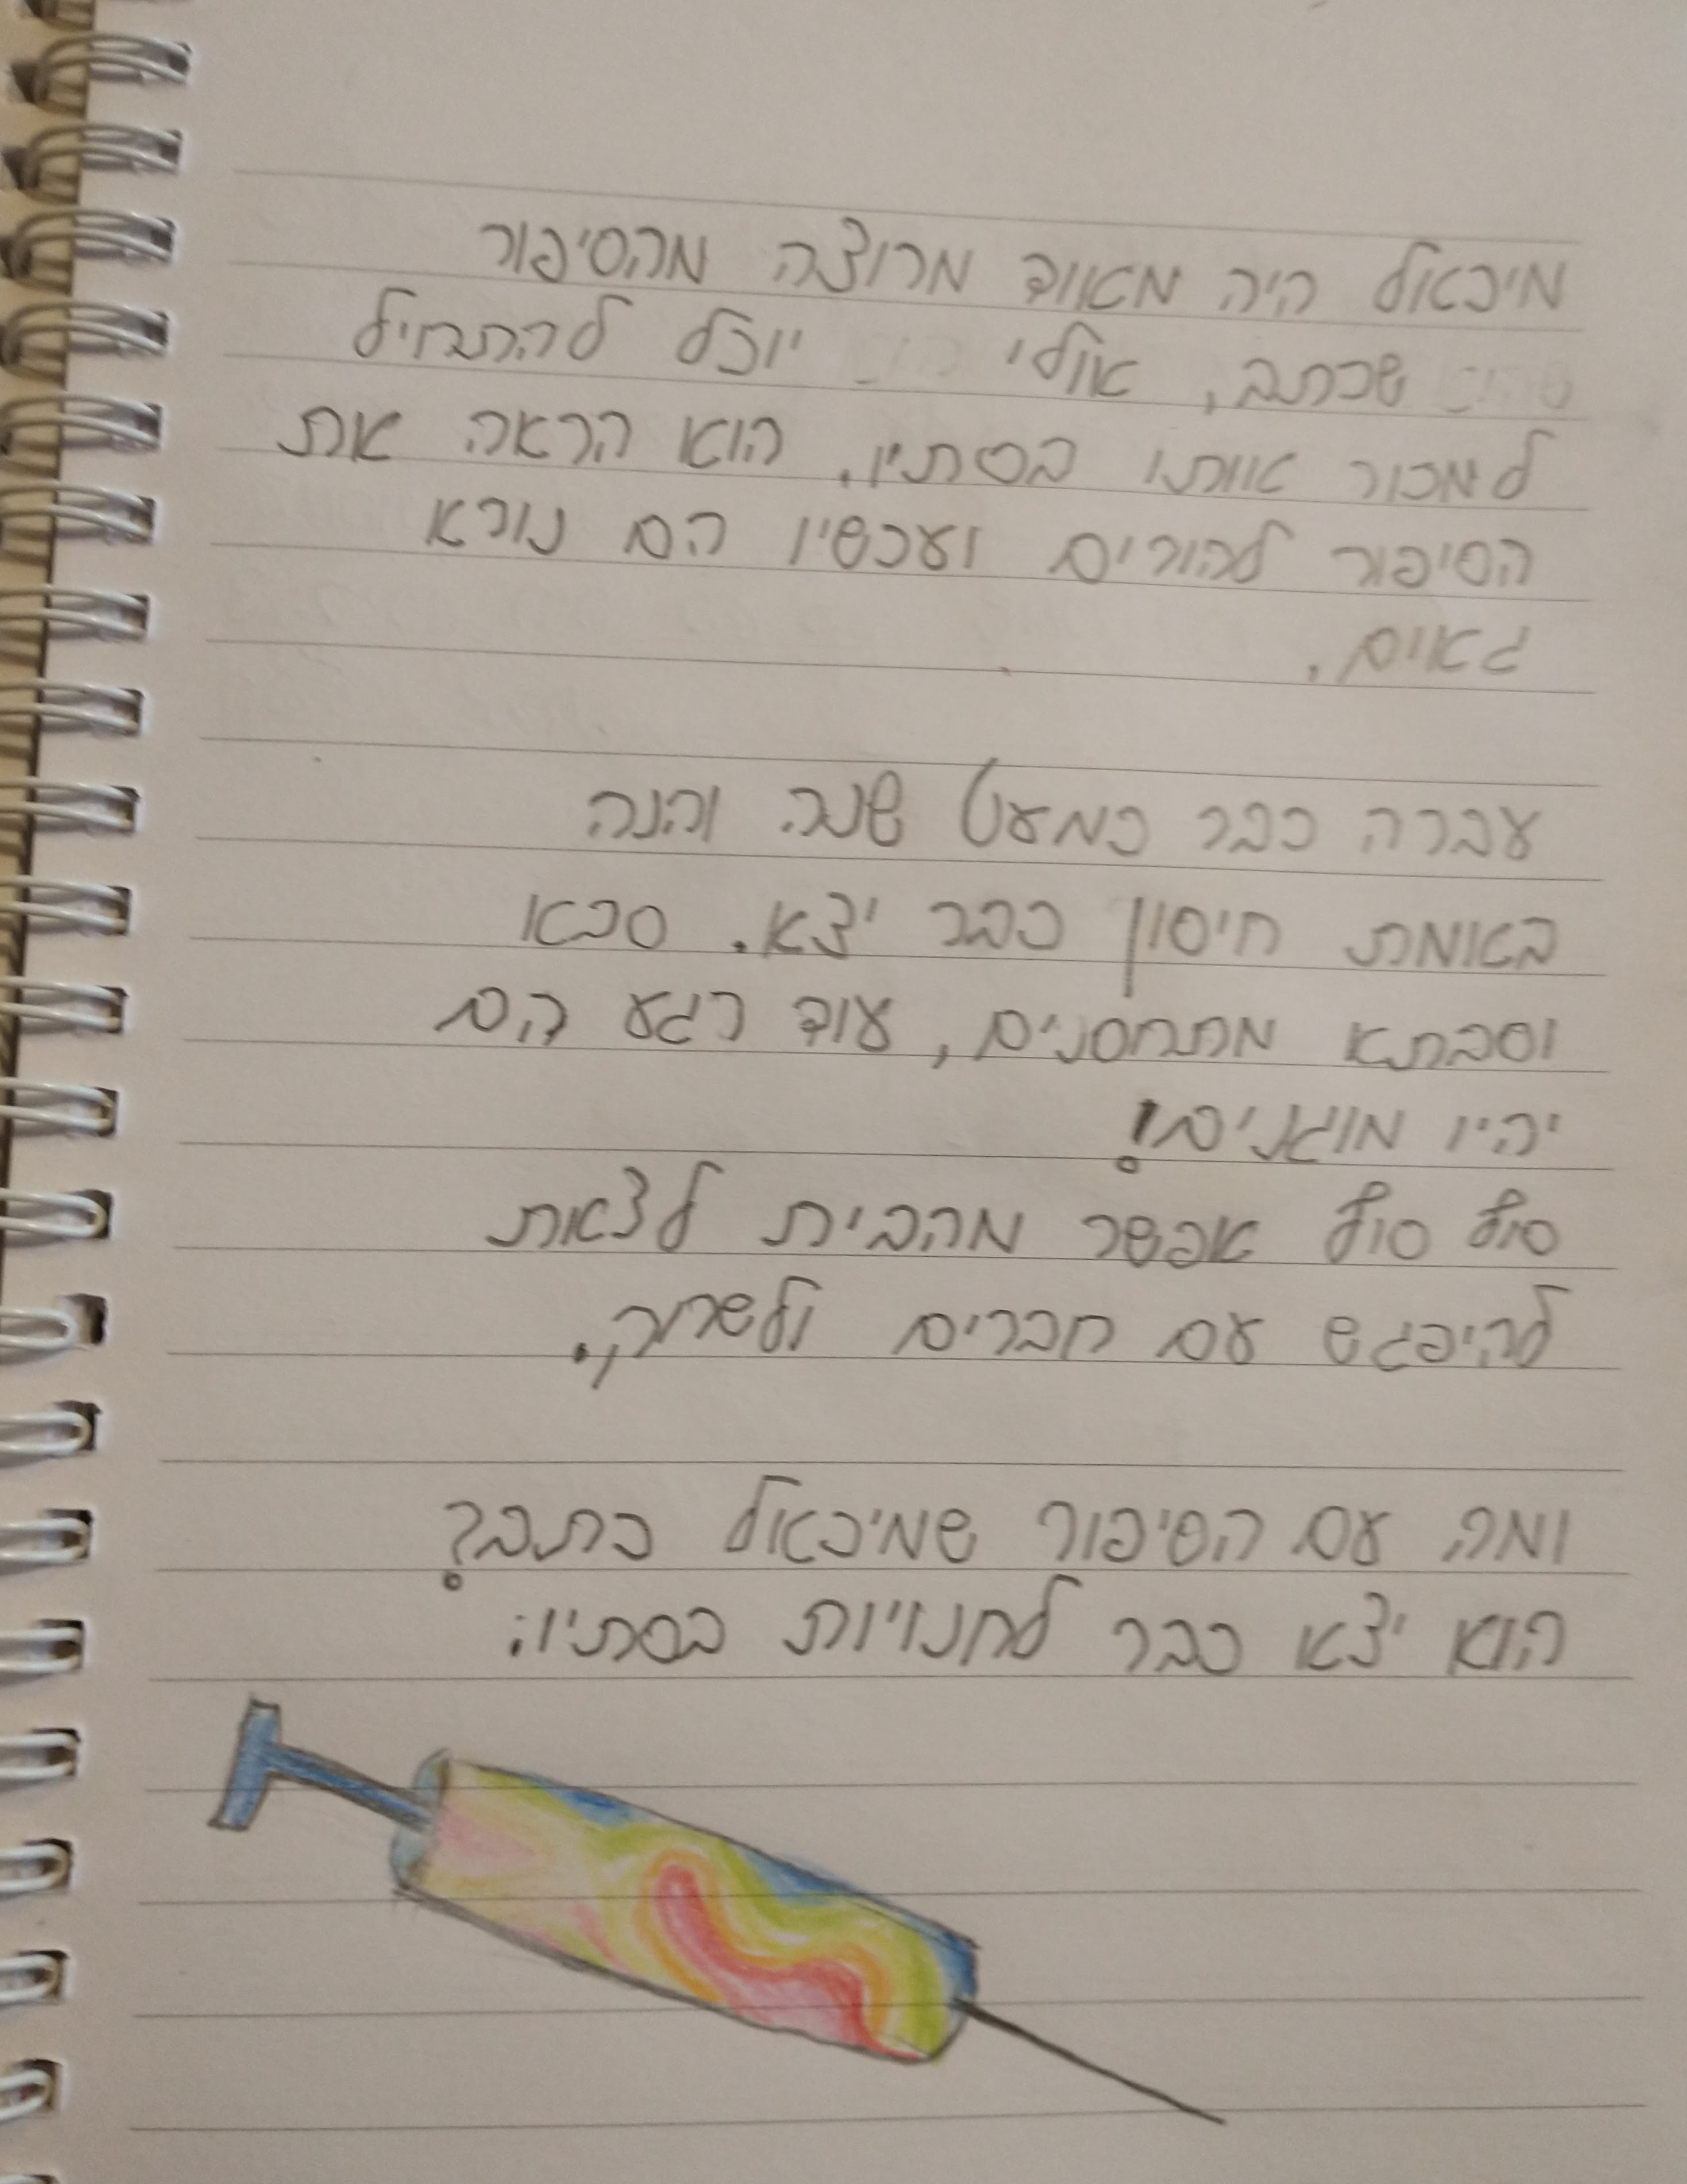 מיכאל היה מאווד מרוצה מהסיפור
שכתב, אולי יוכל להתחיל
למכור אוותו בסתיו. הוא הראה את
הסיפור להורים ועכשיו הם נורא
גאוים.
עברה כבר כמעט שנה והנה
באומת חיסון כבר יצא. סבא
וסבתא מתחסנים, עוד רגע הם
יהיו מוגנים!
סוף סוף אפשר מהבית לצאת
להיפגש עם חברים ולשחק.
ומה עם הסיפור שמיכאל כתב?
הוא יצא כבר לחנויות בסתיו: